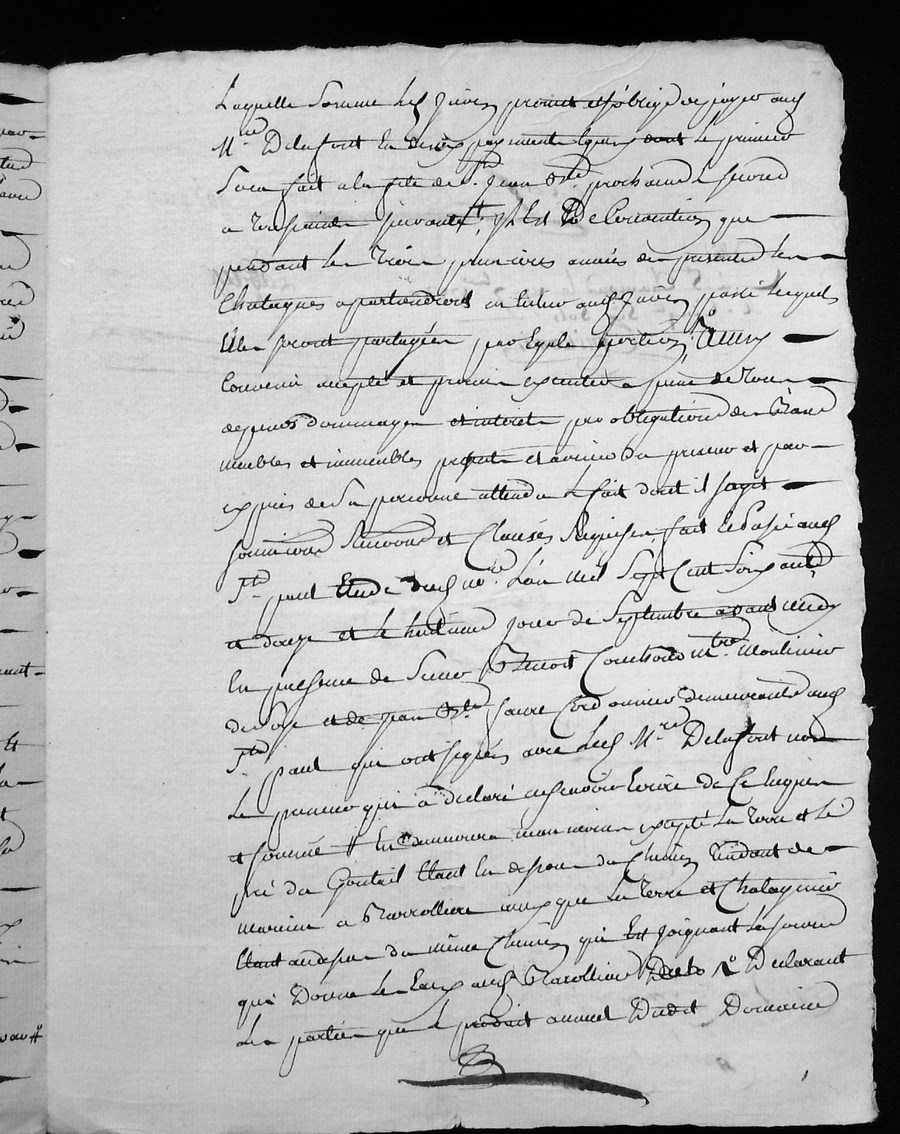 Laquelle somme led. Juven promet et s'oblige de payer aud.
Mre Delafont en deux payements egaux dont le premier
sera fait a la fete de st Jean Bte prochaine le second
a pareille suivante. Il Est De Convention que
pendant les trois premieres années du present les
Chataignes apartiendront en entier aud. Juven passé lesquels
Elles seront partagées par Egale portion. Ainsy
Convenu accepté et promis executer a peine de tous
depens dommages et interets par obligations de biens
meubles et immeubles presents et avenir du preneur et par
exprès de sa personne attendu le fait dont il sagit
soumissions Renoncé et Clauses Requises fait et Passé aud.
St paul Etude dud. nre L'an mil Sept Cent Soixante
et douze et le huitieme jour de Septembre avant midy
En presence de Sieur Benoit mtre Moulinier
et de jean Bte faure Cordonnier demeurants aud.
St paul qui ont signés avec led. Mre Delafont non
Le preneur qui a declaré ne scavoir Ecrire de Ce Enquis
et sommé # excepté La terre et Le
pré du Gouteil Etant En dessous du Chemin tendant de
a que La terre et Chataigneraie
Etant au dessus du même Chemin qui Est joignant La
qui Donne Les Eaux aud. Declarant
Les parties que le produit annuel Dudit Domaine